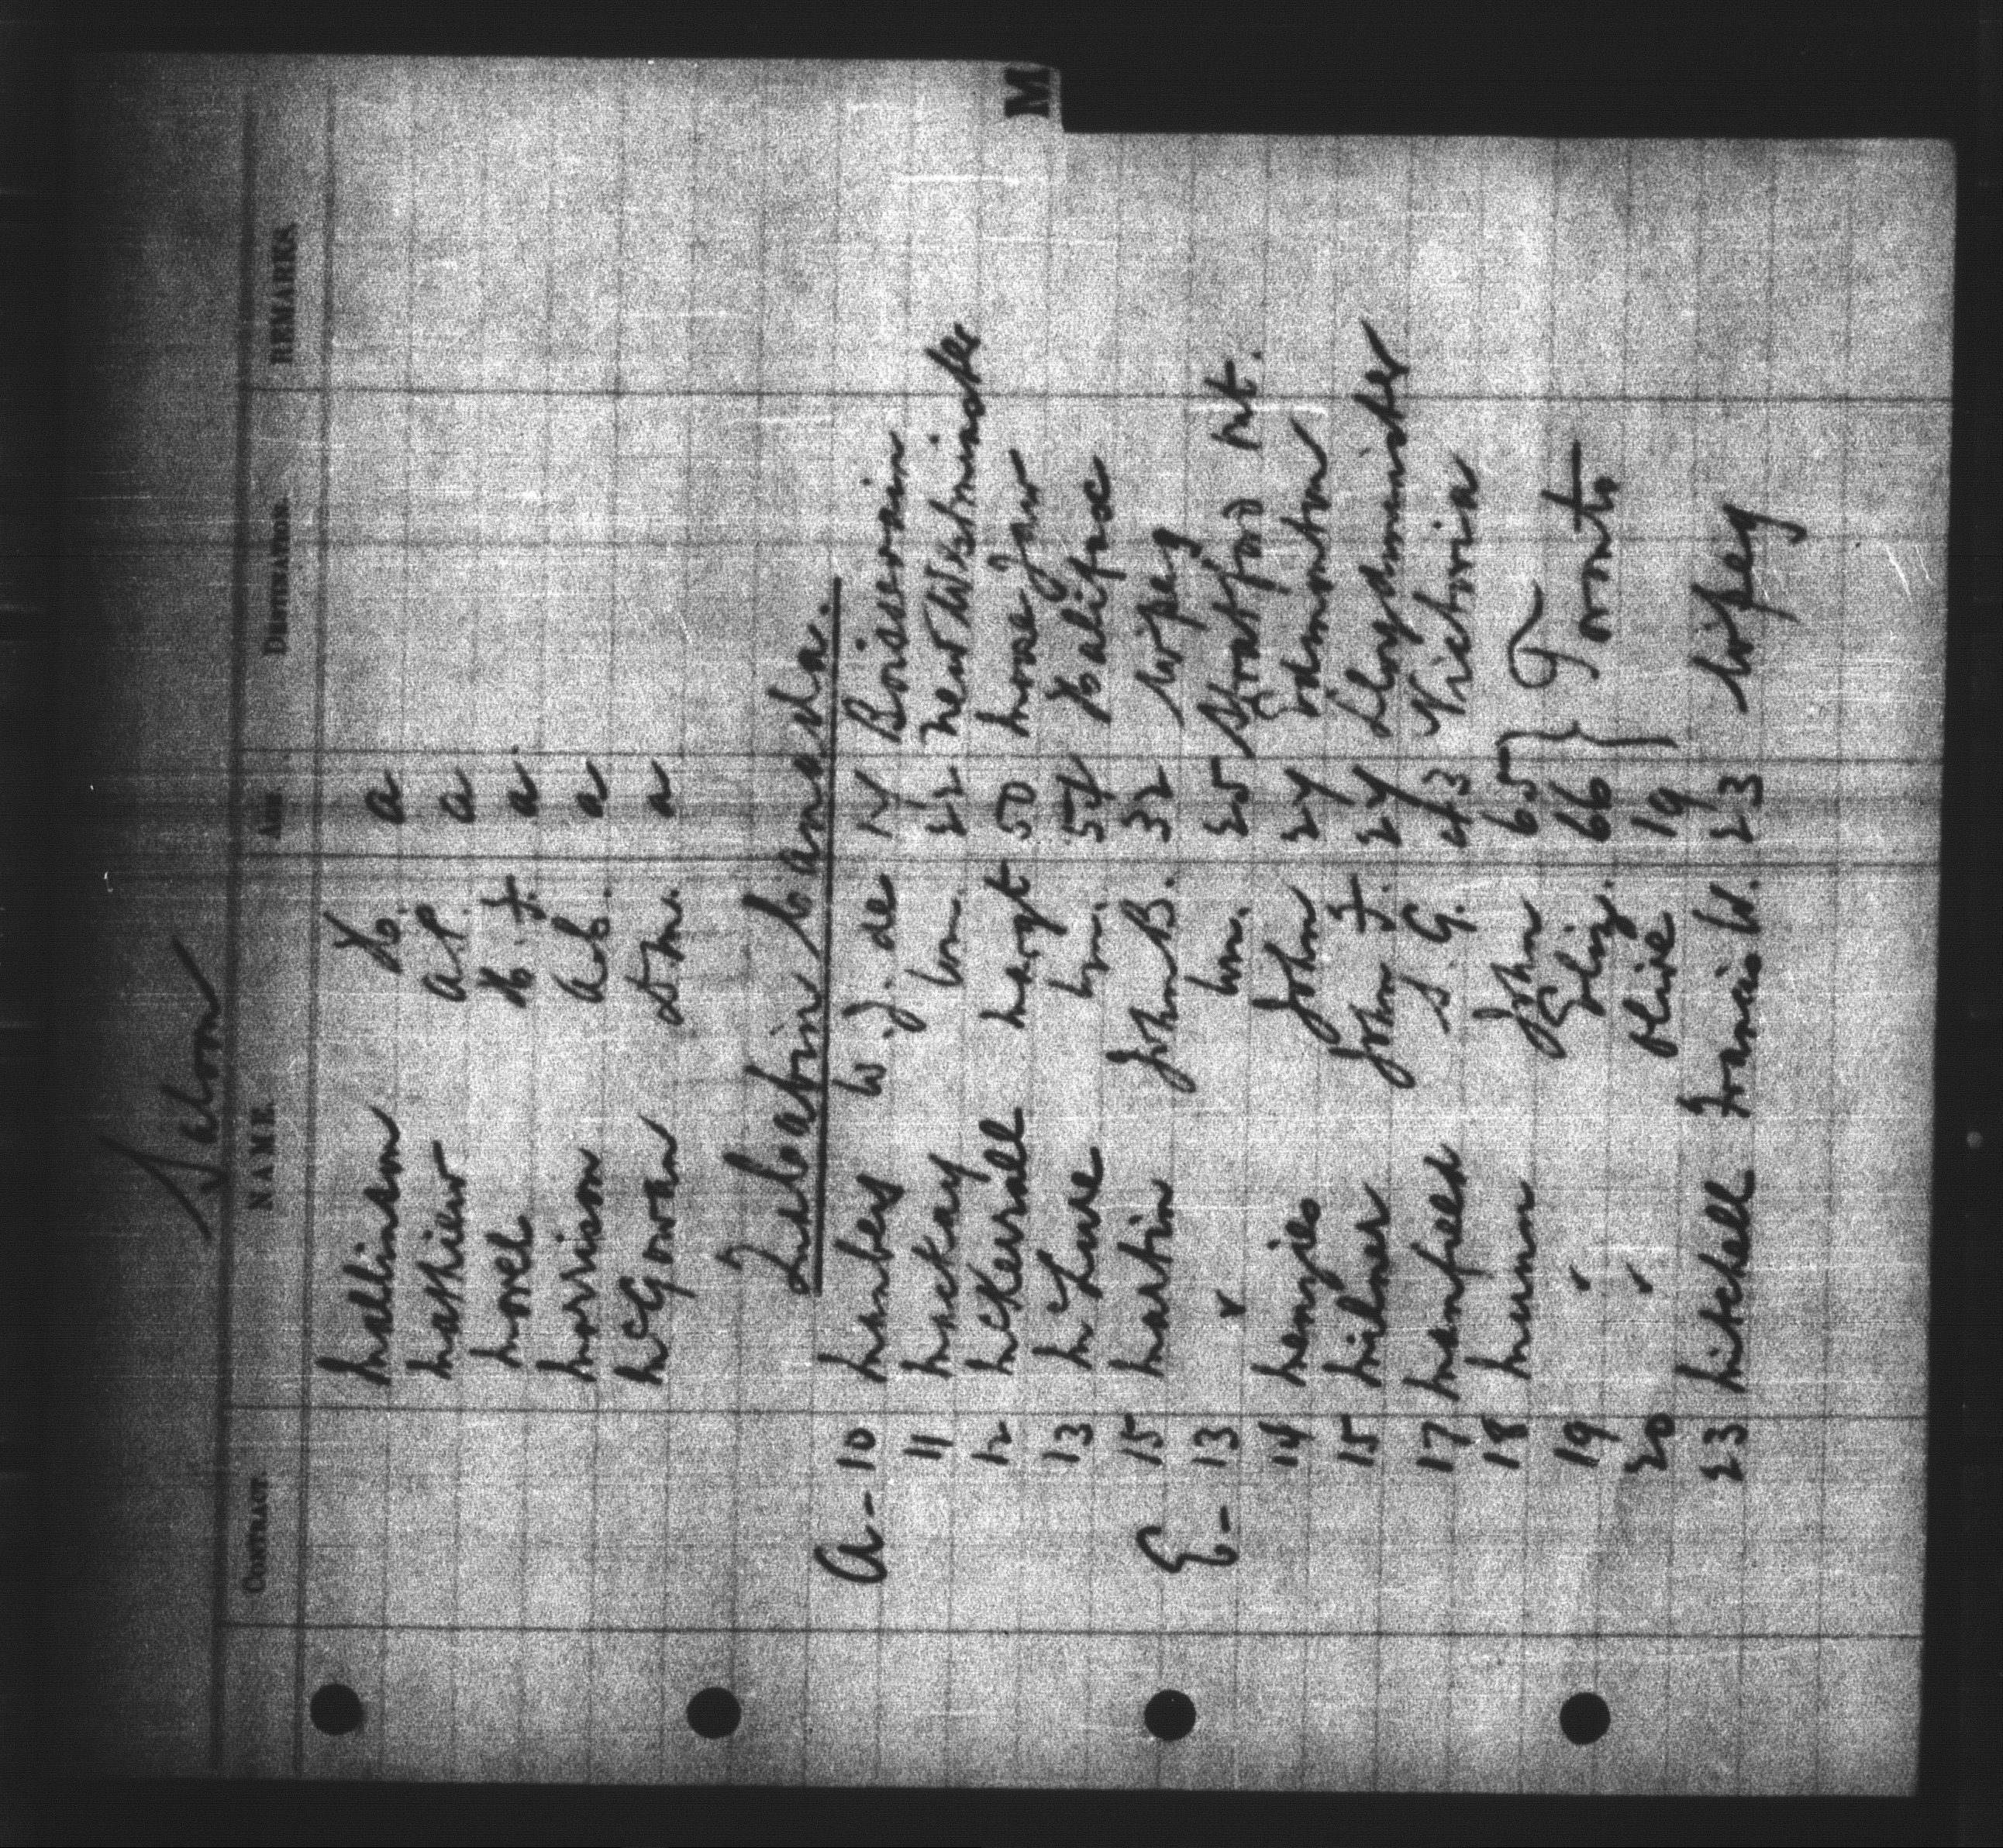 M
Saloon
CONTRACT NAME AGE DESTINATION REMARKS
Mallinson H. a
Mathieu A.P. a
Morel H. J. a
Morrison A.C. a
McGowan D.M. a
2nd Cabin Canada.
A-10 W. J. de 24 Boissevain
11 Mackay Wm. 22 New Westminster
12 McKerrall Margt 50 Moose Jaw
13 Wm. 54 Halifax
15 Martin John B. 32 Wpeg
E-13 " Wm. 25 Stratford Nt.
14 Menzies John 24 Edmonton
15 Milner John F. 24 Lloydminster
17 Manfield S. G. 43 Victoria
18 Munn John 65 } Toronto
19 " Eliz. 66
20 " Olive 19
23 Mitchell Francis W. 23 Wpeg